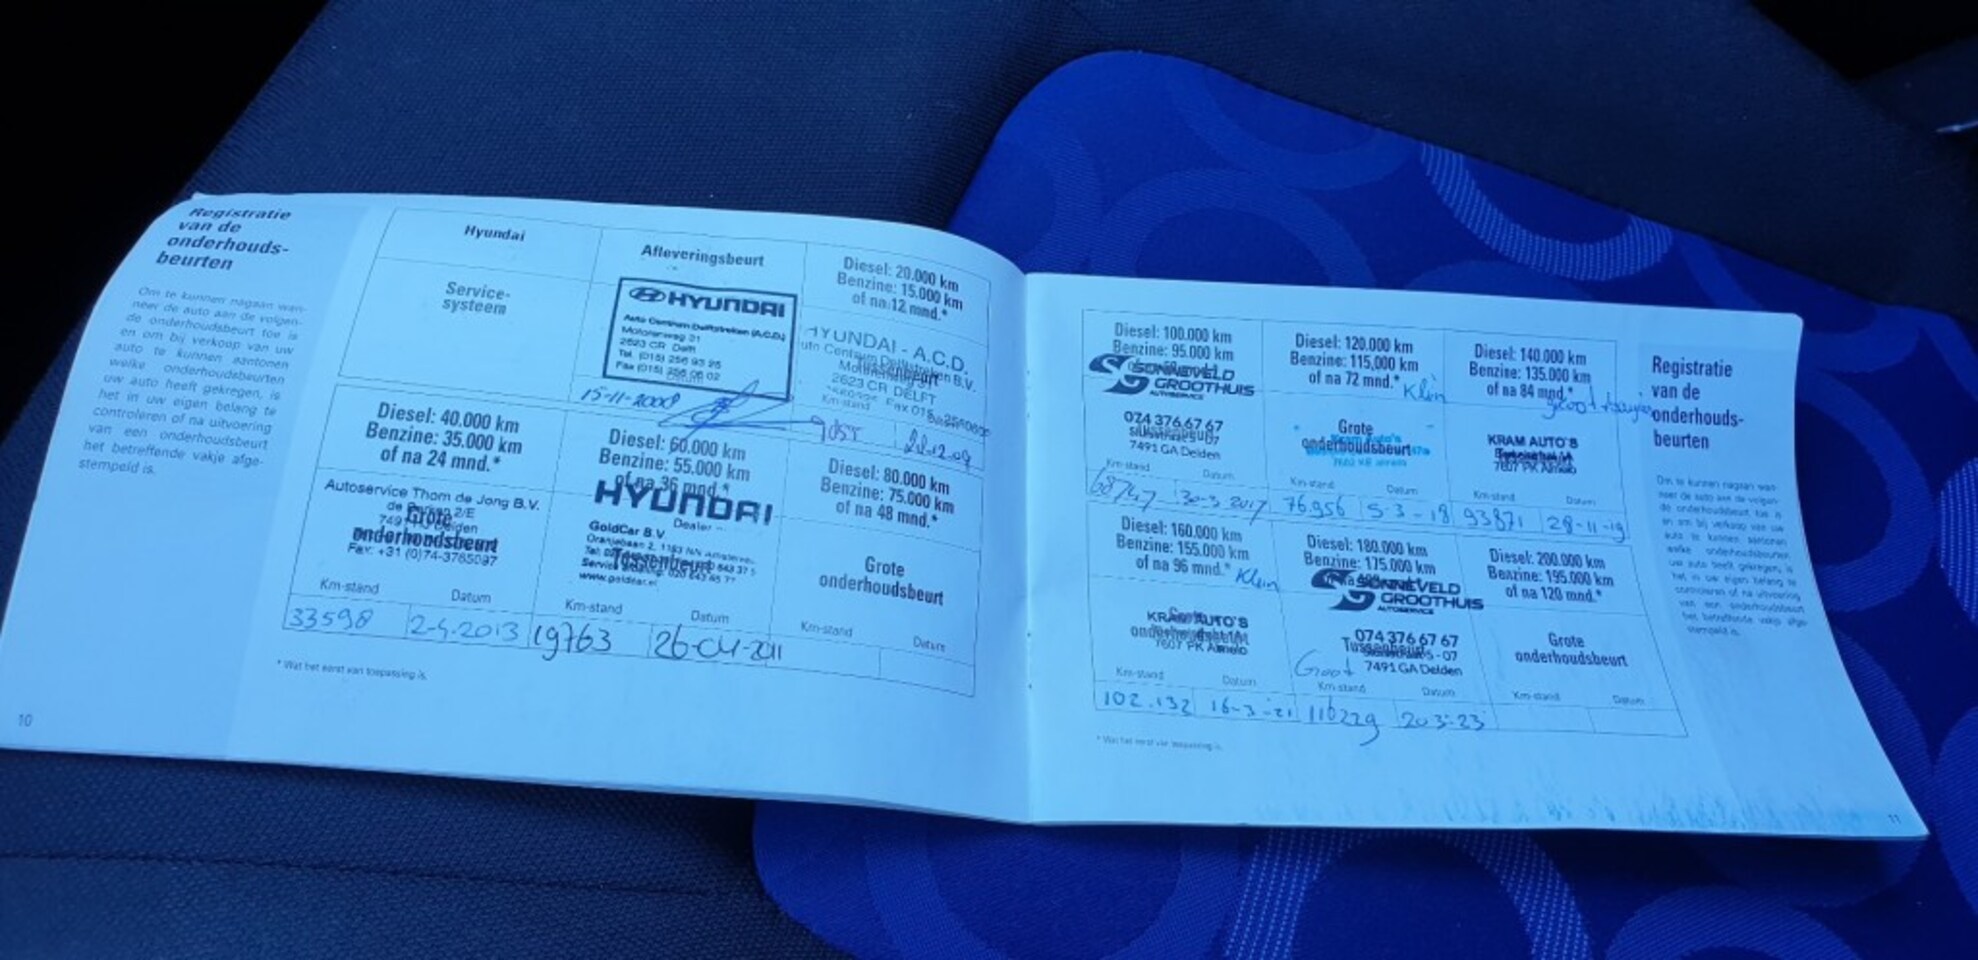 Registratie
van de
onderhouds-
beurten
Om te kunnen nagaan wan-
neer de auto aan de volgen-
de onderhoudsbeurt toe is
en om bij verkoop van uw
auto te kunnen aantonen
welke onderhoudsbeurten
uw auto heeft gekregen, is
het in uw eigen belang te
controleren of na uitvoering
van een onderhoudsbeurt
het betreffende vakje afge-
stempeld is.
10
Hyundai
Service-
systeem
Afleveringsbeurt
HYUNDAI
Auto Centrum Delftstreken (A.C.D.)
Motorenweg 31
2623 CR Delft
Tel. (015) 256 93 25
Fax (015) 256 06 02
15-11-2008
Diesel: 20.000 km
Benzine: 15.000 km
of na 12 mnd.*
HYUNDAI - A.C.D.
2623 CR DELFT
Km-stand
Diesel: 40.000 km
Benzine: 35.000 km
of na 24 mnd.*
Autoservice Thom de Jong B.V.
Grote
onderhoudsbeurt
Fax: +31 (0)74-3765097
Km-stand Datum
33598 2-4-2013
Diesel: 60.000 km
Benzine: 55.000 km
of na 36 mnd.*
HYUNDAI
Dealer
GoldCar B.V.
Tussenbeurt
Km-stand Datum
19763 26-04-2011
Diesel: 80.000 km
Benzine: 75.000 km
of na 48 mnd.*
Grote
onderhoudsbeurt
Km-stand Datum
* Wat het eerst van toepassing is.
Diesel: 100.000 km
Benzine: 95.000 km
SONNEVELD
GROOTHUIS
AUTOSERVICE
074 376 67 67
7491 GA Delden
Km-stand Datum
68747 30-3-2017
Diesel: 120.000 km
Benzine: 115,000 km
of na 72 mnd.*
Klein
Grote
onderhoudsbeurt
Km-stand Datum
76.956 5-3-18
Diesel: 140.000 km
Benzine: 135.000 km
of na 84 mnd.*
KRAM AUTO'S
7607 PK Almelo
Km-stand Datum
93871 28-11-19
Diesel: 160.000 km
Benzine: 155.000 km
of na 96 mnd.*
Klein
KRAM AUTO'S
7607 PK Almelo
Km-stand Datum
102.132 16-3-21
Diesel: 180.000 km
Benzine: 175.000 km
SONNEVELD
GROOTHUIS
AUTOSERVICE
074 376 67 67
Tussenbeurt
Groot
7491 GA Delden
Km-stand Datum
116229 20-3-23
Diesel: 200.000 km
Benzine: 195.000 km
of na 120 mnd.*
Grote
onderhoudsbeurt
Km-stand Datum
* Wat het eerst van toepassing is.
Registratie
van de
onderhouds-
beurten
Om te kunnen nagaan wan-
neer de auto aan de volgen-
de onderhoudsbeurt toe is
en om bij verkoop van uw
auto te kunnen aantonen
welke onderhoudsbeurten
uw auto heeft gekregen, is
het in uw eigen belang te
controleren of na uitvoering
van een onderhoudsbeurt
het betreffende vakje afge-
stempeld is.
11